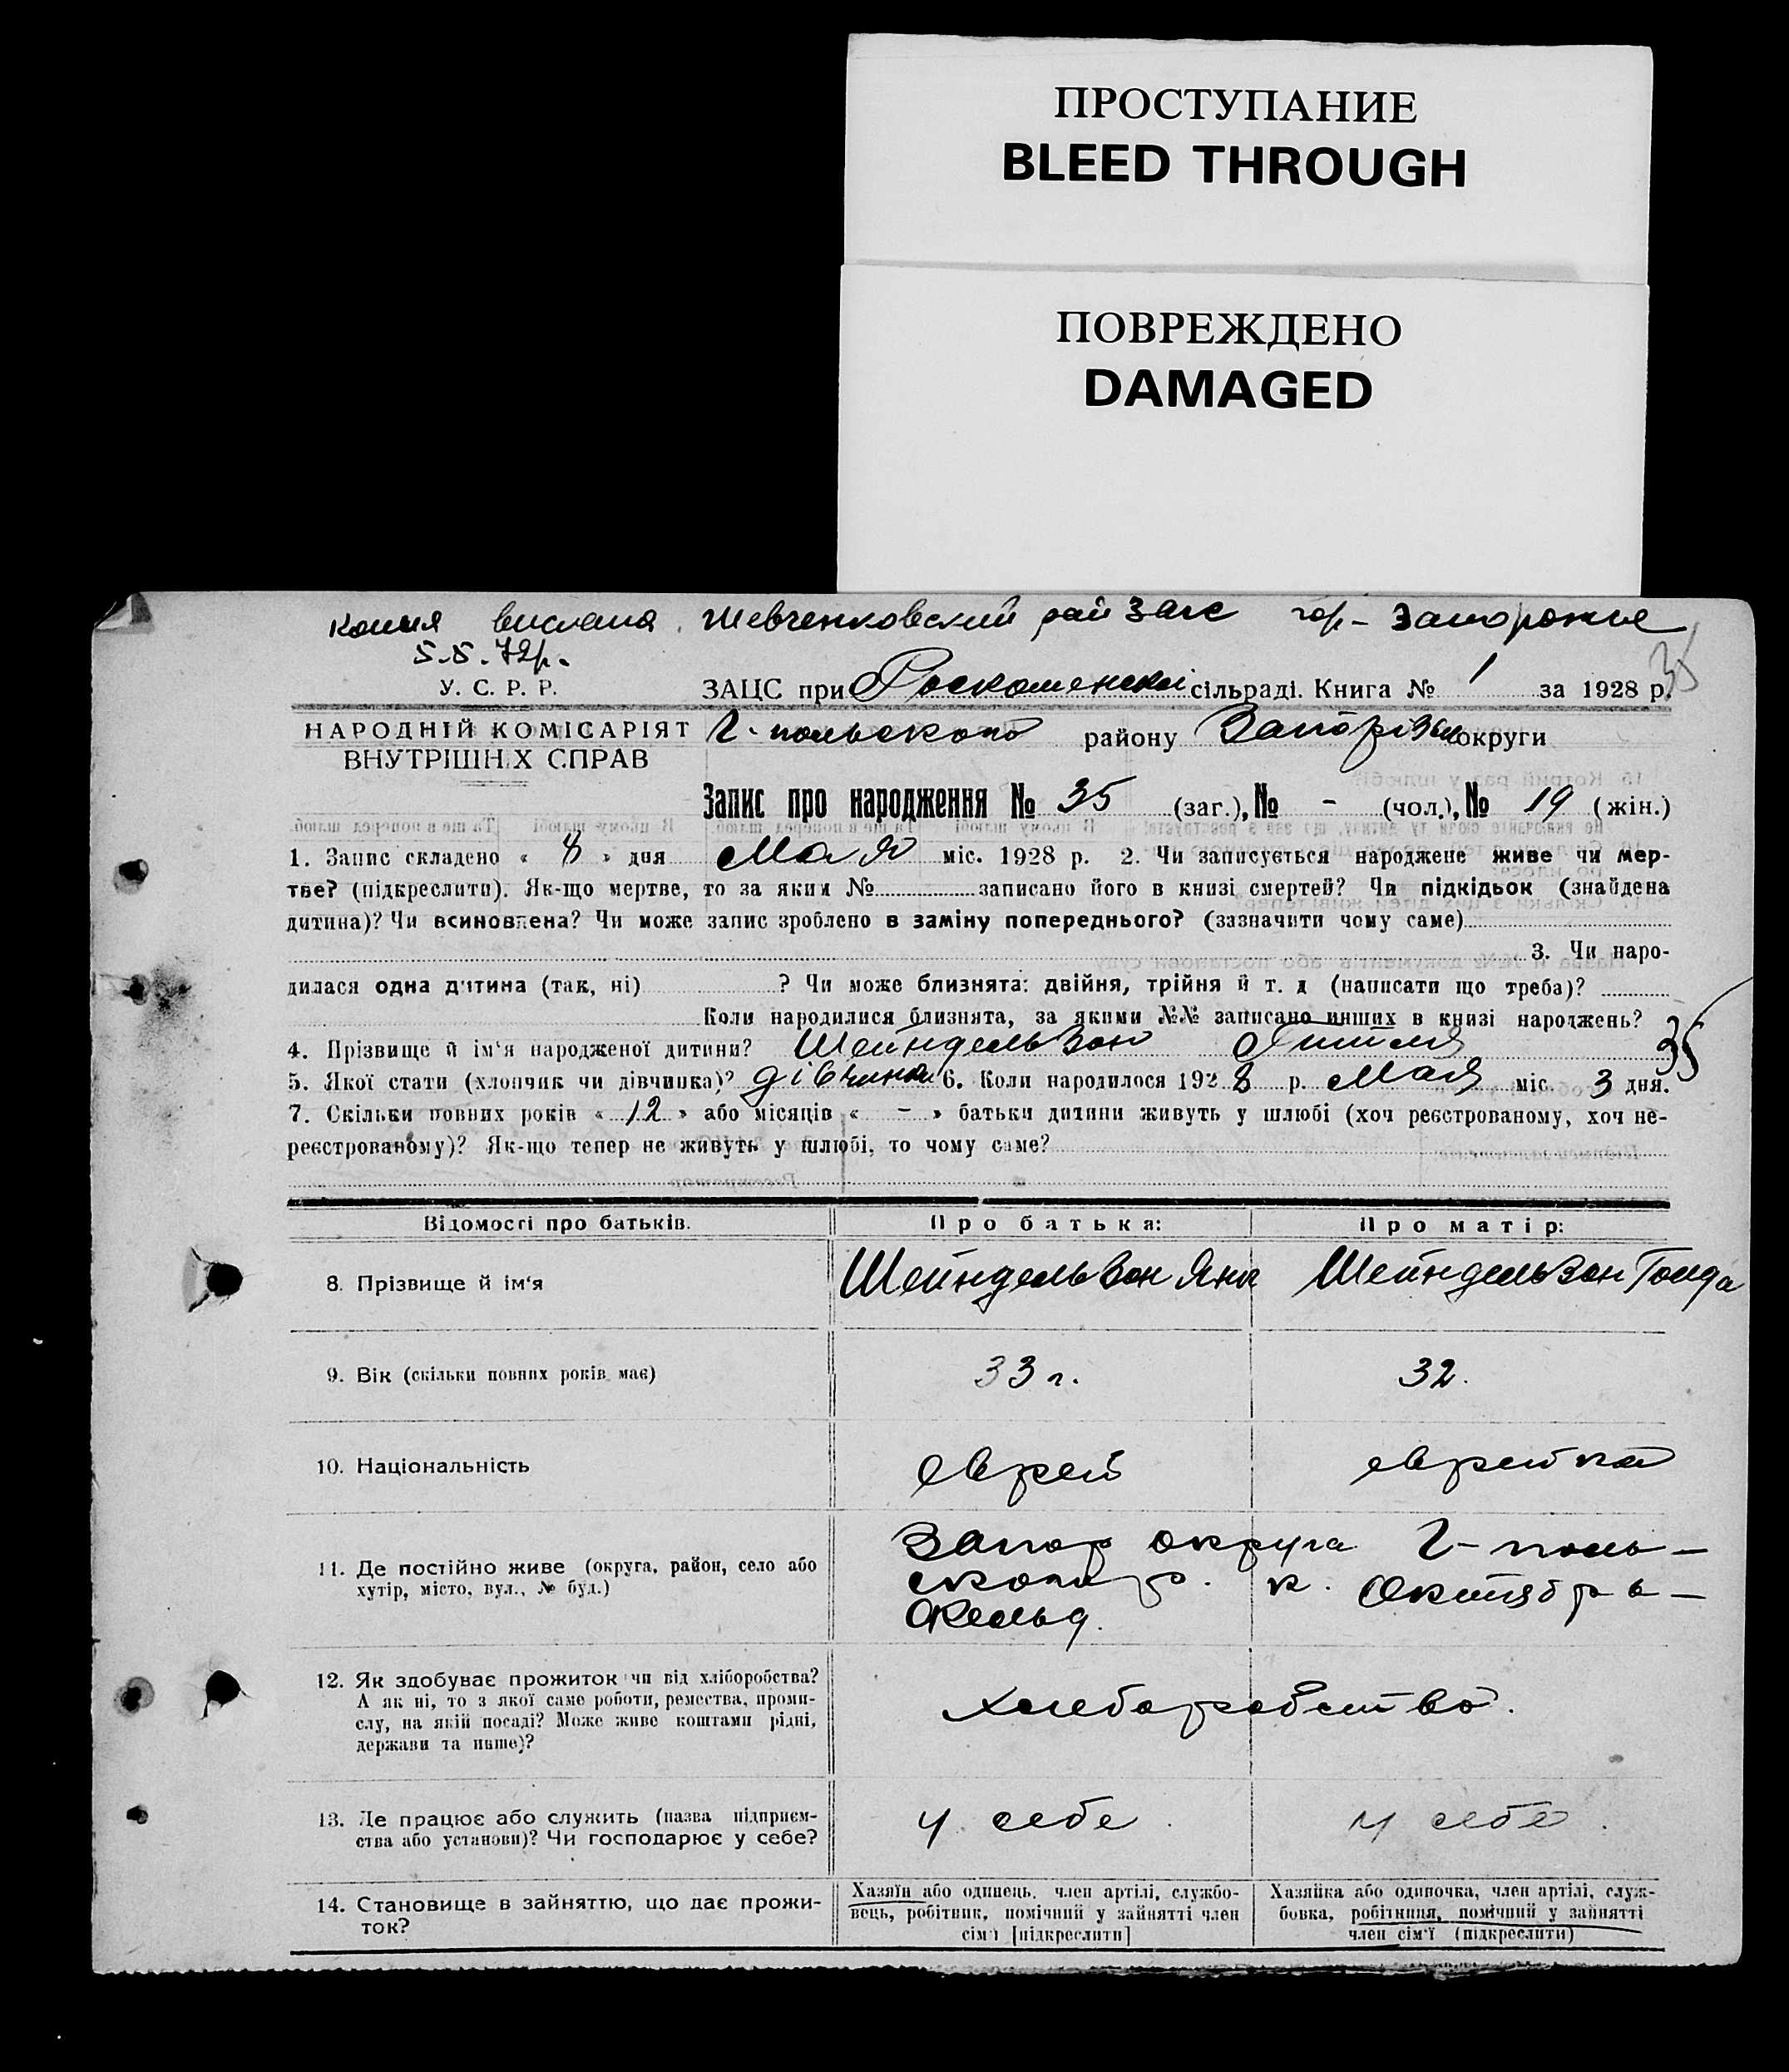 ПРОСТУПАНИЕ
BLEED THROUGH
ПОВРЕЖДЕНО
DAMAGED
копия выслана Шевченковский рай Загс гор- Запорожье
5.5.72р.
35
У. С. Р. Р.
НАРОДНІЙ КОМІСАРІЯТ
ВНУТРІШНІХ СПРАВ
ЗАЦС при сільраді. Книга № 1 за 1928 р.
Г-польского району Запорізьк округи
Запис про народження № 35 (заг.), № - (чол.), № 19 (жін.)
1. Запис складено « 8 » дня Мая міс. 1928 р. 2. Чи записується народжене живе чи мер-
тве? (підкреслити). Як-що мертве, то за яким № записано його в книзі смертей? Чи підкідьок (знайдена
дитина)? Чи всиновлена? Чи може запис зроблено в заміну попереднього? (зазначити чому саме)
3. Чи наро-
дилася одна дитина (так, ні) ? Чи може близнята: двійня, трійня й т. д (написати що треба)?
Коли народилися близнята, за якими №№ записано инших в книзі народжень?
4. Прізвище й ім'я народженої дитини? Шейндельзон
35
5. Якої стати (хлопчик чи дівчинка)? дівчина 6. Коли народилося 1928 р. Мая міс. 3 дня.
7. Скільки повних років « 12 » або місяців « - » батьки дитини живуть у шлюбі (хоч реєстрованому, хоч не-
реєстрованому)? Як-що тепер не живуть у шлюбі, то чому саме?
Відомості про батьків. Про батька: Про матір:
8. Прізвище й ім'я Шейндельзон Шейндельзон Голда
9. Вік (скільки повних років має) 33 г. 32.
10. Національність еврей еврейка
11. Де постійно живе (округа, район, село або
хутір, місто, вул., № буд.)
Запор округа Г-поль-
ского р. к. Октябрь-
Фельд.
12. Як здобуває прожиток чи від хліборобства?
А як ні, то з якої саме роботи, ремества, проми-
слу, на якій посаді? Може живе коштами рідні,
держави та инше)?
хлеборобство.
13. Де працює або служить (назва підприєм-
ства або установи)? Чи господарює у себе?
у себе. у себе.
14. Становище в зайняттю, що дає прожи-
ток?
Хазяїн або одинець, член артілі, службо-
вець, робітник, помічний у зайнятті член
сім'ї [підкреслити]
Хазяйка або одиночка, член артілі, служ-
бовка, робітниця, помічний у зайнятті
член сім'ї (підкреслити)